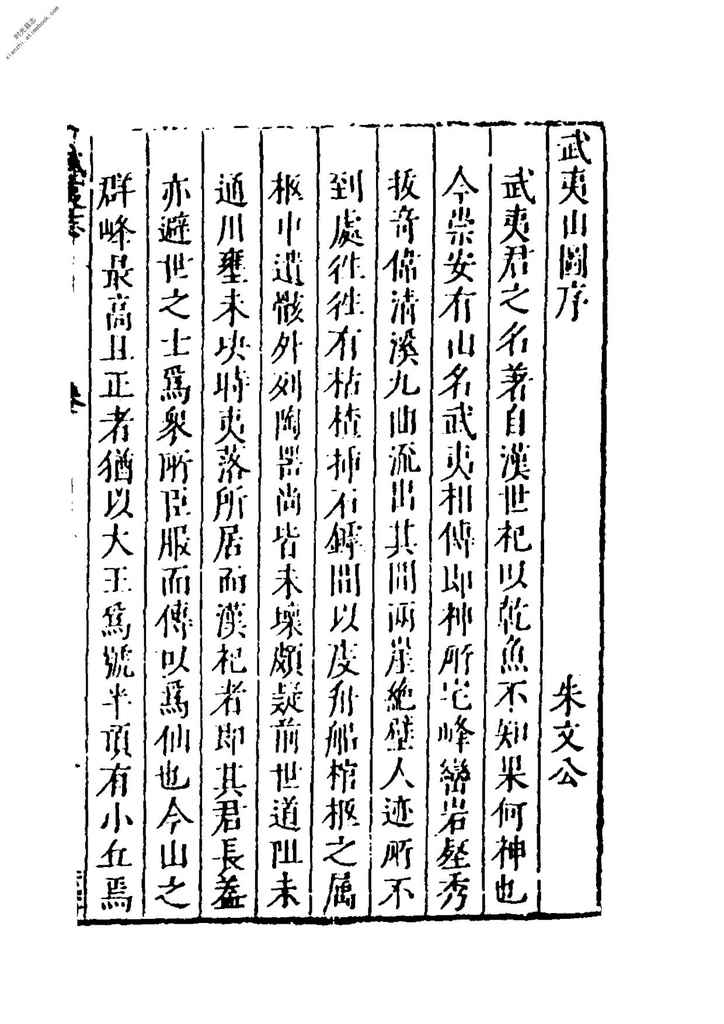 武夷山圖序　朱文公
武夷君之名著自漢世祀以乾魚不知果何神也
今崇安有山名武夷相傳即神所宅峰巒岩壑秀
拔奇偉清溪九曲流出其間兩崖絶壁人迹所不
到處徃徃有枯楂揷石罅間以庋舟船棺柩之属
柩中遺骸外列陶器尚皆未壞頗疑前世道阻未
通川壅未决時夷落所居而漢祀者即其君長葢
亦避世之士爲衆所臣服而傳以爲仙也今山之
群峰最高且正者猶以大王爲號半頂有小丘焉
武夷志
卷